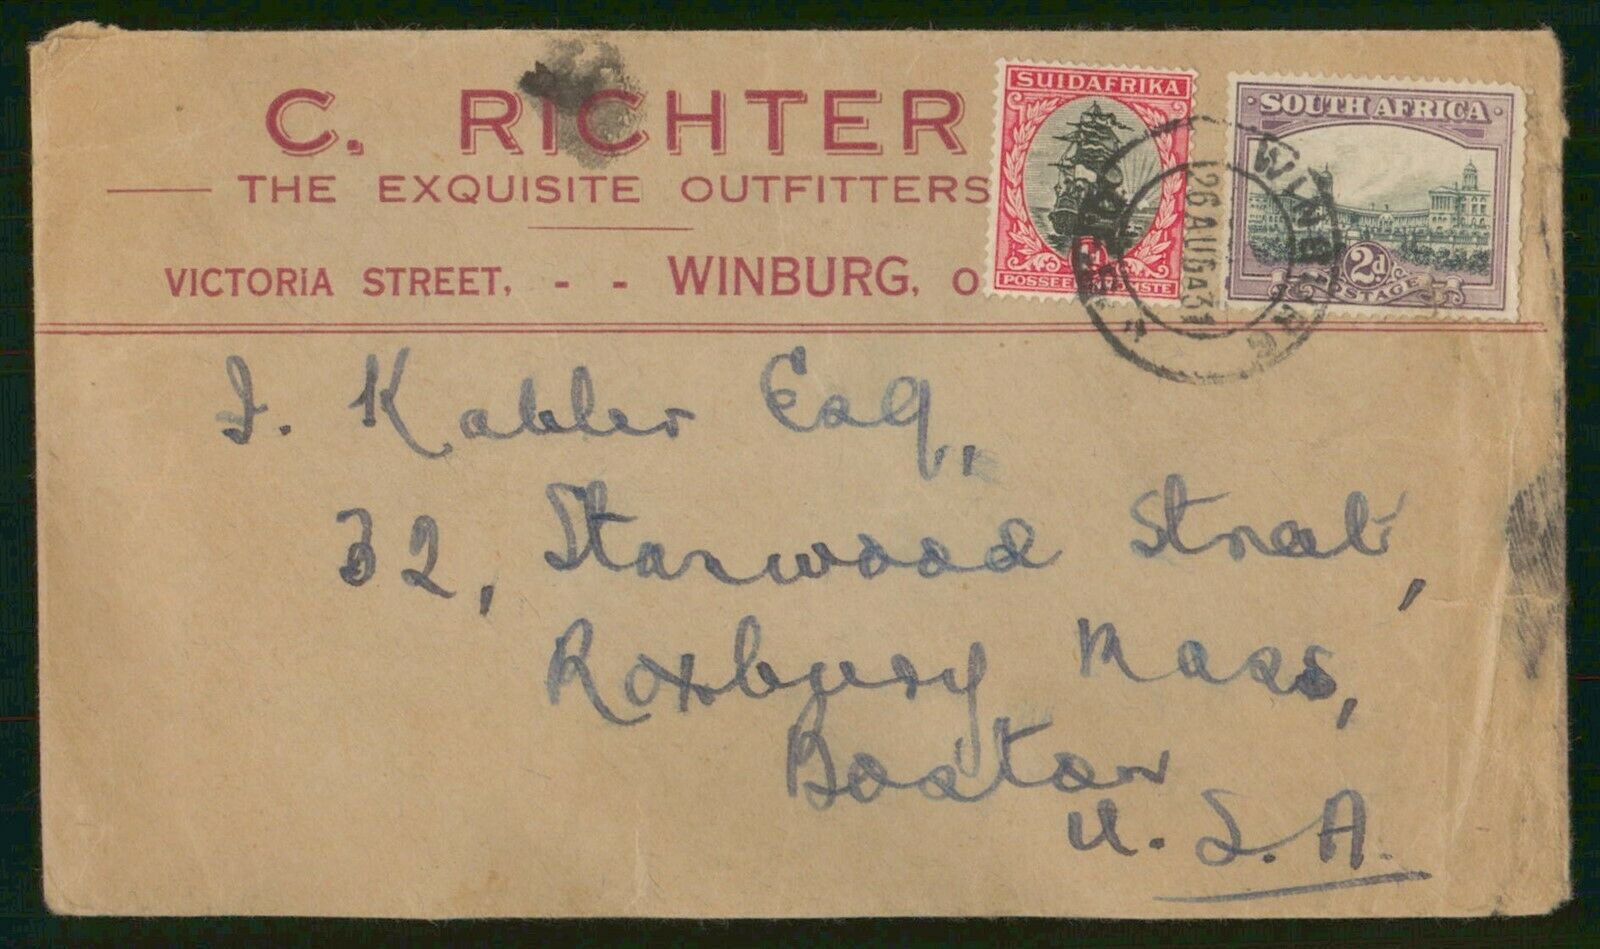 C. RICHTER
THE EXQUISITE OUTFITTERS
VICTORIA STREET, - - WINBURG, O
SUIDAFRIKA
POSSEEL
SOUTH AFRICA
2d
POSTAGE
WINBURG
26 AUG 31
J. Kabler Esq,,
32, Starwood Street,
Roxbury Mass,
Boston
U.S.A.